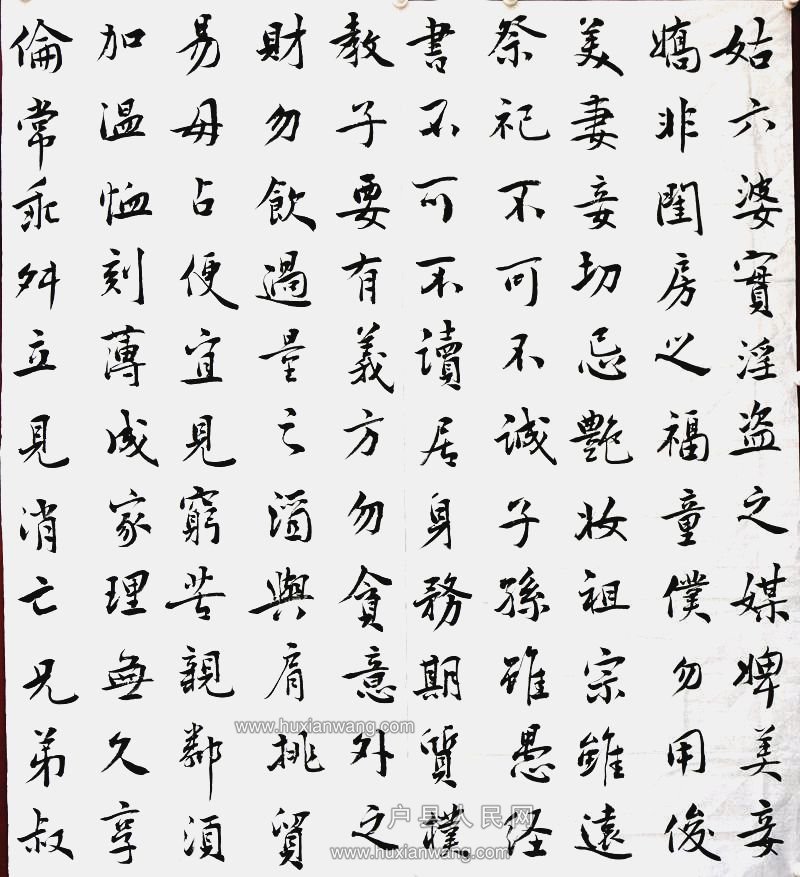 姑六婆實淫盜之媒婢美妾
嬌非閨房之福童僕勿用俊
美妻妾切忌艷妝祖宗雖遠
祭祀不可不誠子孫雖愚经
書不可不讀居身務期質樸
教子要有義方勿貪意外之
財勿飲過量之酒與肩挑貿
易毋占便宜見窮苦親鄰須
加温恤刻薄成家理無久享
倫常乖舛立見消亡兄弟叔
www.huxianwang.com
户县人民网
www.huxianwang.com